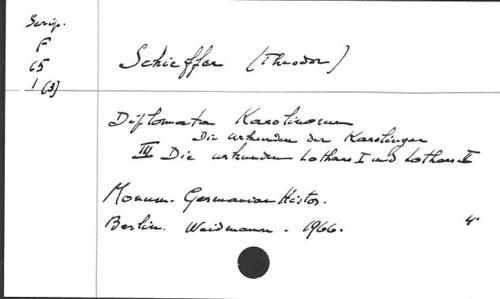 Scrip.
F
65
1 (3)
Schieffer (Theodor)
Diplomata Karolinorum
Die urkunden der Karolinger
III Die urkunden Lothars I und Lothars II
Monum. Germaniae Histor.
Berlin. Weidmann. 1966.
4°